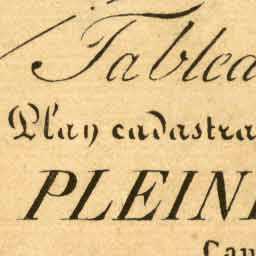 Tablea
Plan cadastra
PLEIN
Can